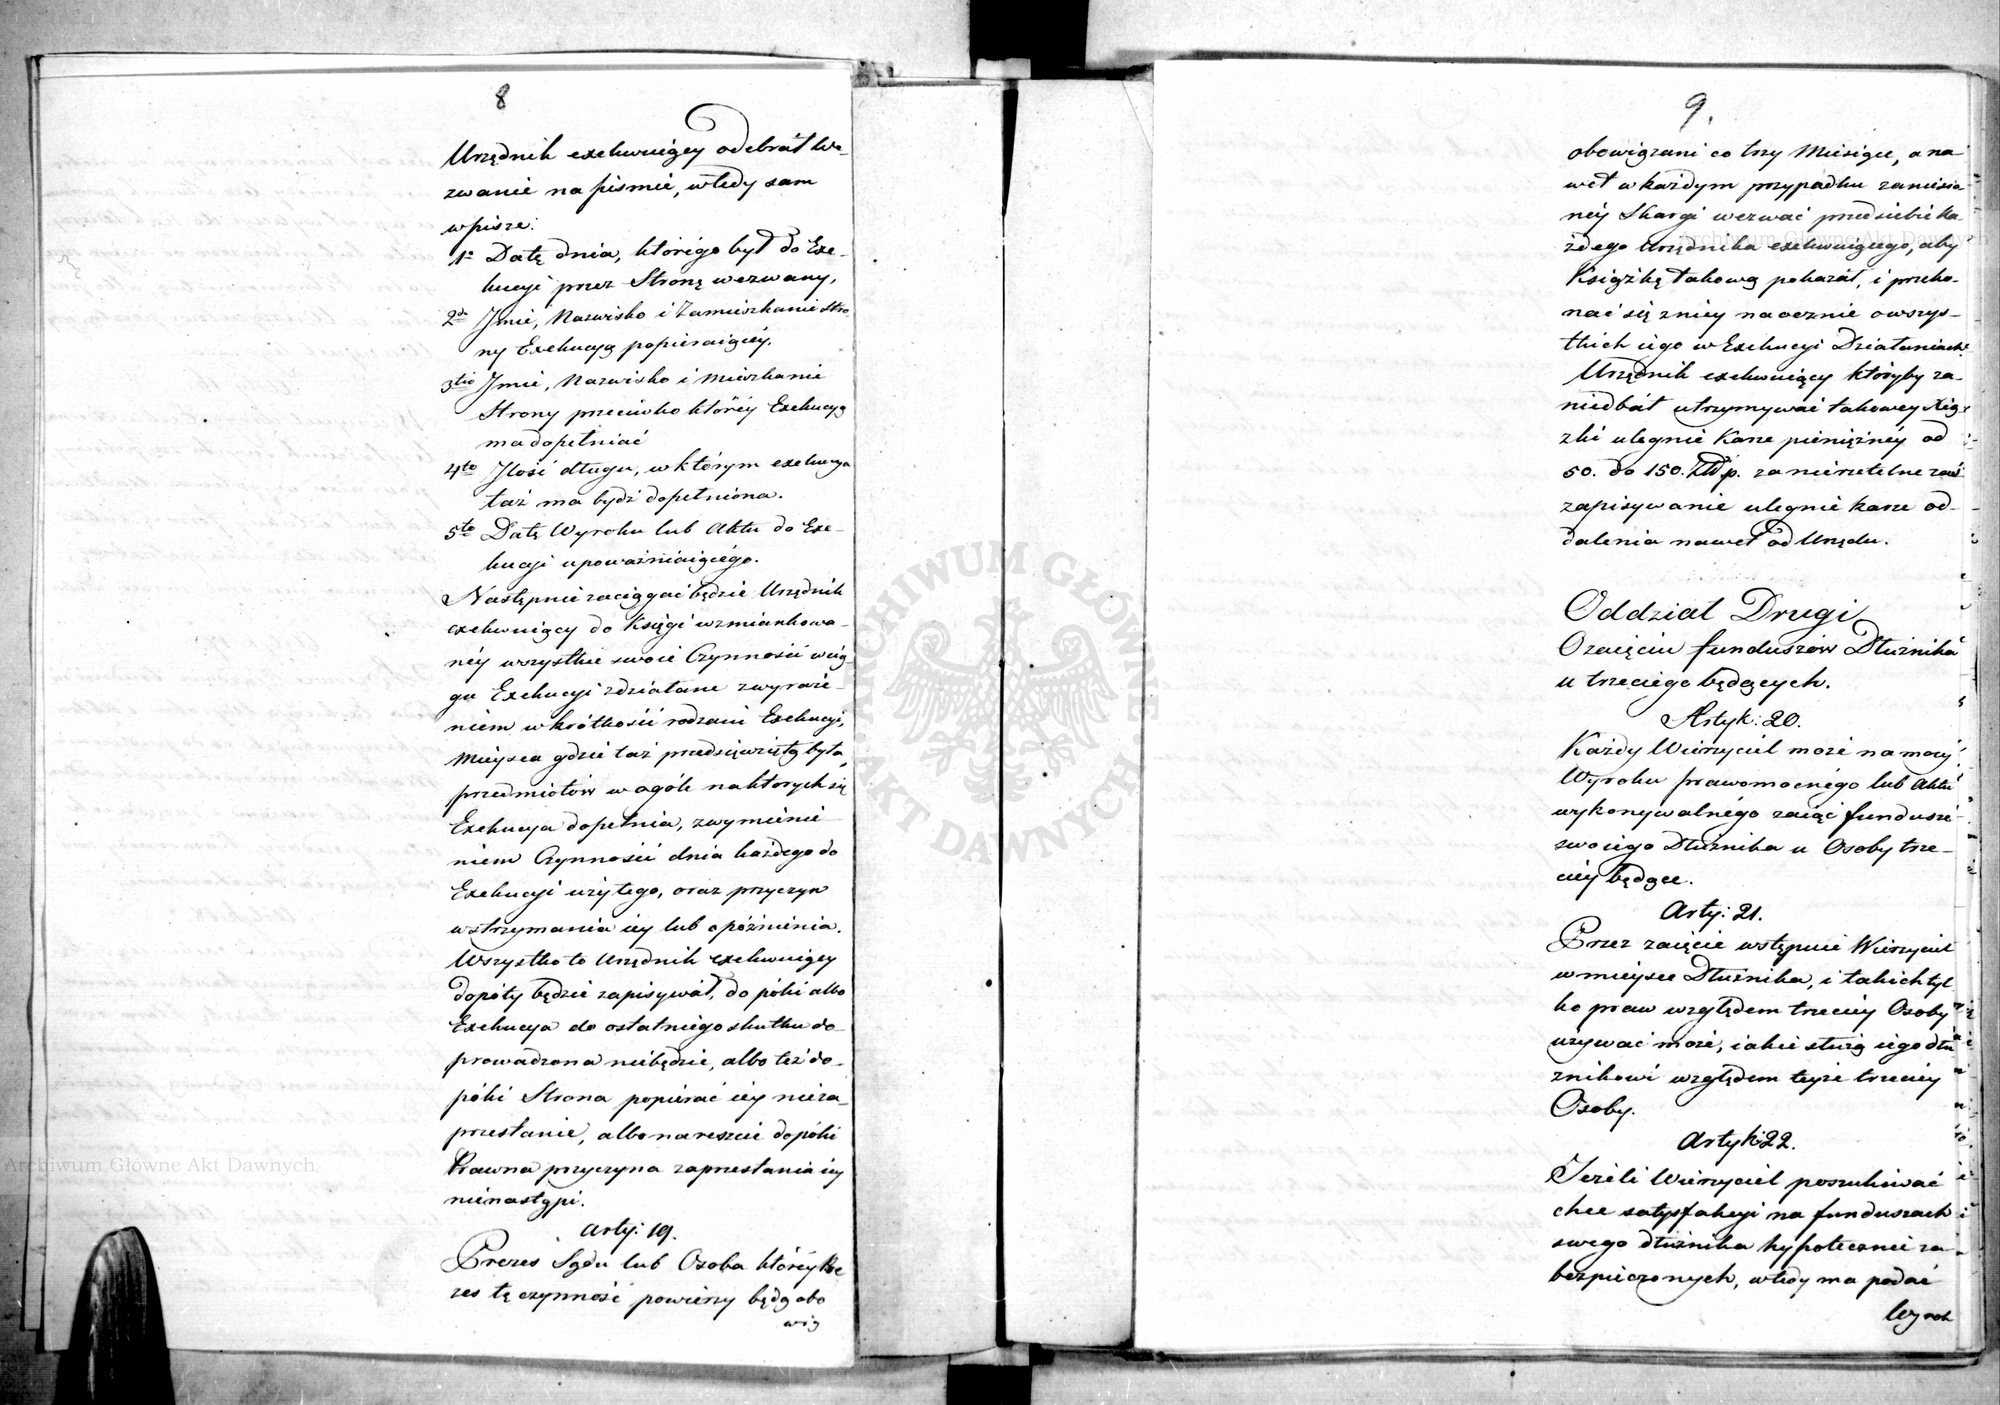 8
Urzędnik exekwuiący odebrał We-
zwanie na piśmie, wtedy sam
wpisze:
1o Datę dnia, którego był do Exe-
kucyi przez Stronę wezwany,
2do Jmie, Nazwisko i Zamieszkanie Stro-
ny Exekucyą popieraiącéy.
3tio Jmie, Nazwisko i Mieszkanie
Strony przeciwko któréy Exekucyą
ma dopełniać
4to Jlość długu, w którym exekucya
taż ma bydź dopełniona.
5to Datę Wyroku lub Aktu do Exe-
kucyi upoważniaiącégo.
Następnie zaciągać będzie Urzędnik
exekwuiący do Księgi wzmiankowa-
néy wszystkie swoie Czynności w cią-
gu Exekucyi zdziałane z wyraże-
niem w krótkości rodzaiu Exekucyi,
Mieysca gdzie taż przedsięwziętą była,
przedmiotów w ogóle na ktorych się
Exekucya dopełnia, z wymienie-
niem Czynności dnia każdego do
Exekucyi użytego, oraz przyczyn
wstrzymania iéy lub opóźnienia.
Wszystko to Urzędnik exekwuiący
dopóty będzie zapisywał, dopóki albo
Exekucya do ostatniego skutku do-
prowadzona niebędzie, albo też do-
póki Strona popierać iéy nieza-
przestanie, albo nareszcie dopóki
Prawna przyczyna zaprzestania iéy
nienastąpi.
Arty: 19.
Prezes Sądu lub Osoba któréy Pre
zes tę czynność powierzy będą obo
wią
9.
obowiązani co trzy Miesiące, a na-
wet w każdym przypadku zaniesio-
néy Skargi wezwać przed siebie ka-
żdego Urzędnika exekwuiącego, aby
Książkę takową pokazał, i przeko-
nać się z niéy naocznie o wszys-
tkich iego w Exekucyi Działaniach.
Urzędnik exekwuiący któryby za-
niedbał utrzymywać takowéy Xiąż-
zki ulegnie Karze pieniężnéy od
50. do 150. Złłp. za nierzetelne zaś
zapisywanie ulegnie karze od-
dalenia nawet od Urzędu.
Oddział Drugi
O zaięciu funduszów Dłużnika
u trzeciego będących.
Artyk: 20.
Każdy Wierzyciel może na mocy
Wyroku prawomocnégo lub Aktu
wykonywalnégo zaiąć fundusze
swoiego Dłużnika u Osoby trze-
ciéy będące.
Arty: 21.
Przez zaięcie wstępuie Wierzyciel
w mieysce Dłużnika, i takich tyl
ko praw względem trzeciéy Osoby
używać może, iakie służą iego dłu
żnikowi względem teyże trzeciéy
Osoby.
Artyk: 22.
Jeżeli Wierzyciel poszukiwać
chce satysfakcyi na funduszach
swego dłużnika hypotecznie za-
bezpieczonych, wtedy ma podać
Wyrok
Archiwum Główne Akt Dawnych
ARCHIWUM GŁÓWNE AKT DAWNYCH
Archiwum Główne Akt Dawnych